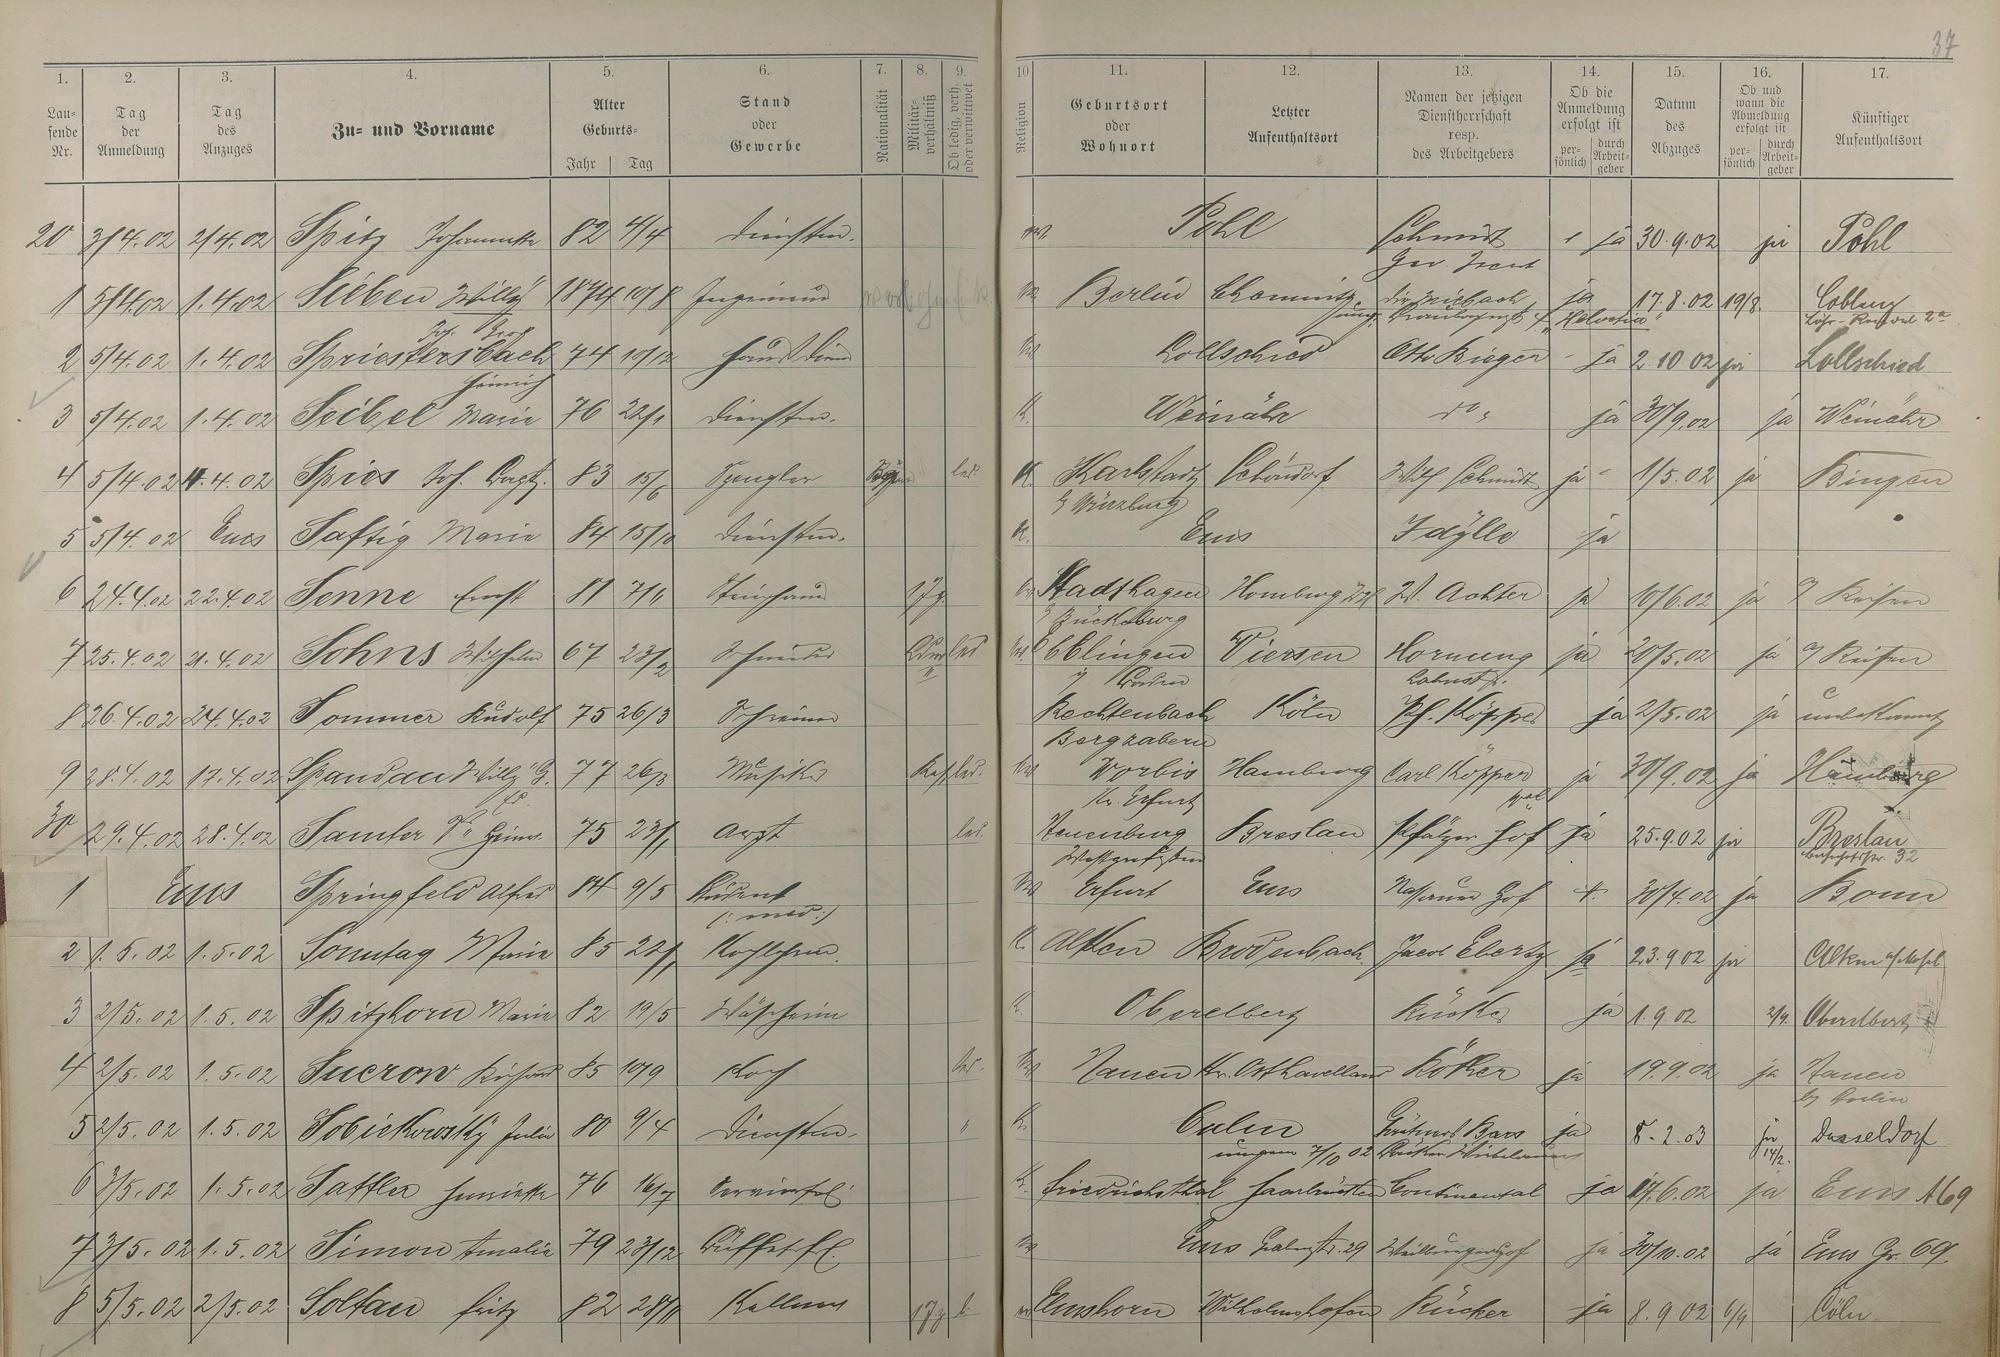 37
1. 2. 3. 4. 5. 6. 7. 8. 9. 10 11. 12. 13. 14. 15. 16. 17.
Laufende Nr. Tag der Anmeldung Tag des Anzuges Zu- und Vorname Alter Geburts- Jahr Tag Stand oder Gewerbe Nationalität Militärverhältniß Ob ledig, verh. oder verwittwet Religion Geburtsort oder Wohnort Letzter Aufenthaltsort Namen der jetzigen Dienstherrschaft resp. des Arbeitgebers Ob die Anmeldung erfolgt ist persönlich durch Arbeitgeber Datum des Abzuges Ob und wann die Abmeldung erfolgt ist persönlich durch Arbeitgeber Künftiger Aufenthaltsort
20 3/4.02 2/4.02 Spitz Johannette 82 4/4 Dienstm. Pohl Schmidt ja 30.9.02 ja Pohl
1 5/4.02 1.4.02 Sieben Willy 1874 10/8 Ingenieur Berlin Chemnitz ja 17.8.02 19/8. Coblenz
"Helvetia" 2a
2 5/4.02 1.4.02 Spriestersbach 74 10/12 Hausdiener Lollschied Otto Bieger - ja 2.10.02 ja Lollschied
Heinrich
3 5/4.02 1.4.02 Seibel Marie 76 22/1 Dienstm. K. Weinähr do " ja 30/9.02 ja Weinähr
4 5/4.02 4.4.02 Spies Joh. 83 15/6 Spengler led K. Karlstadt Schöndorf Wilh Schmidt ja - 1/5.02 ja Bingen
b/ Würzburg
5 5/4.02 Ems Saftig Marie 84 15/10 Dienstm. K. Ems Idylle ja
6 24.4.02 22.4.02 Sonne Ernst 81 7/11 Steinhauer Stadthagen Homburg W. Achter ja 10/6.02 ja a/ Reisen
Bückeburg
7 25.4.02 21.4.02 Sohns Wilhelm 67 23/2 Schneider led Viersen Hornung ja 20/5.02 ja a/ Reisen
Baden Lahnstr.
8 26.4.02 24.4.02 Sommer Rudolf 75 26/3 Schreiner Rechtenbach Köln Ph. Köpper ja 2/5.02 ja unbekannt
Bergzabern
9 28.4.02 17.4.02 Spandau Willy G. 77 26/3 Musiker led. Worbis Hamburg Carl Köpper ja 30/9.02 ja Hamburg
Kr. Erfurt
30 29.4.02 28.4.02 Samter Dr. Heinr. 75 23/1 Arzt led. Neuenburg Breslau Pfälzer Hof ja 25.9.02 ja Breslau
Westpreußen 32
1 Ems Springfeld Alfred 84 9/5 Student Erfurt Ems Nassauer Hof 30/4.02 ja Bonn
(: med :)
2 1.5.02 1.5.02 Sonntag Maria 85 22/1 Kochlehrm. K. Alken Brodenbach Jacob Ebertz ja 23.9.02 ja Alken a/Mosel
3 2/5.02 1.5.02 Spitzhorn Marie 82 19/5 Wäscherin K. Oberelbert Rücker ja 1.9.02 2/9. Oberelbert
4 2/5.02 1.5.02 Sucrow Richard 85 10/9 Koch Nauen Kr. Osthavelland Röther ja 19.9.02 ja Nauen
b/ Berlin
5 2/5.02 1.5.02 Sobiekowsky Julie 80 9/4 Dienstm. " K. Culm ja 8.2.03 ja Dusseldorf
7/10 02 14/2.
6 3/5.02 1.5.02 Sattler Henriette 76 16/7 Servierfrl. K. Friedrichsthal Saarbrücken Continental ja 17.6.02 ja Ems A69
7 3/5.02 1.5.02 Simon Amalie 79 23/12 Büffetfl. Ems Grabenstr. 29 Weilburgerhof ja 30/10.02 ja Ems Gr. 69
8 5/5.02 2/5.02 Soltau Fritz 82 28/11 Kellner Elmshorn Wilhelmshafen Rücker ja 8.9.02 6/9 Cöln